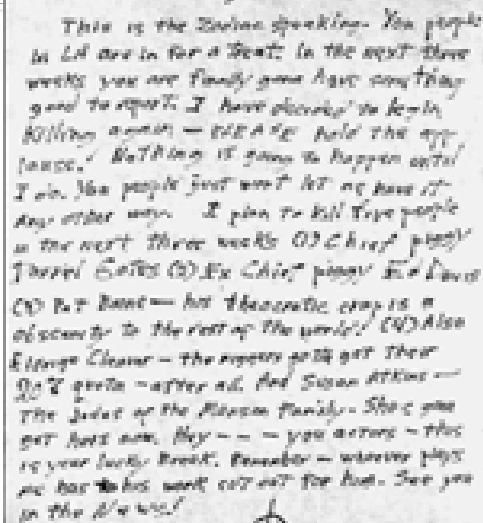 This is the Zodiac speaking. You people
in LA are in for a treat. In the next three
weeks you are finally gona have something
good to report. I have decided to begin
killing again - PLEASE hold the app
lause! Nothing is going to happen until
I do. You people just wont let me have it
any other way. I plan to kill five people
in the next three weeks (1) Chief piggy
Darrel Gates (2) Ex Chief piggy Ed Davis
(3) Pat Boone - his theocratic crap is a
obscenity to the rest of the world! (4) Also
Eldrige Cleaver - the niggers gotta get their
20% quota - after all. And Susan Atkins -
The Judas of the Manson Family. Shes gona
get hers now. Hey - - - you actors - this
is your lucky Break. Remember - whoever plays
me has his work cut out for him. See you
in the News!